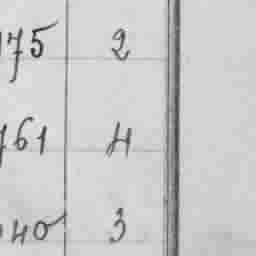 175 2
761 4
40 3